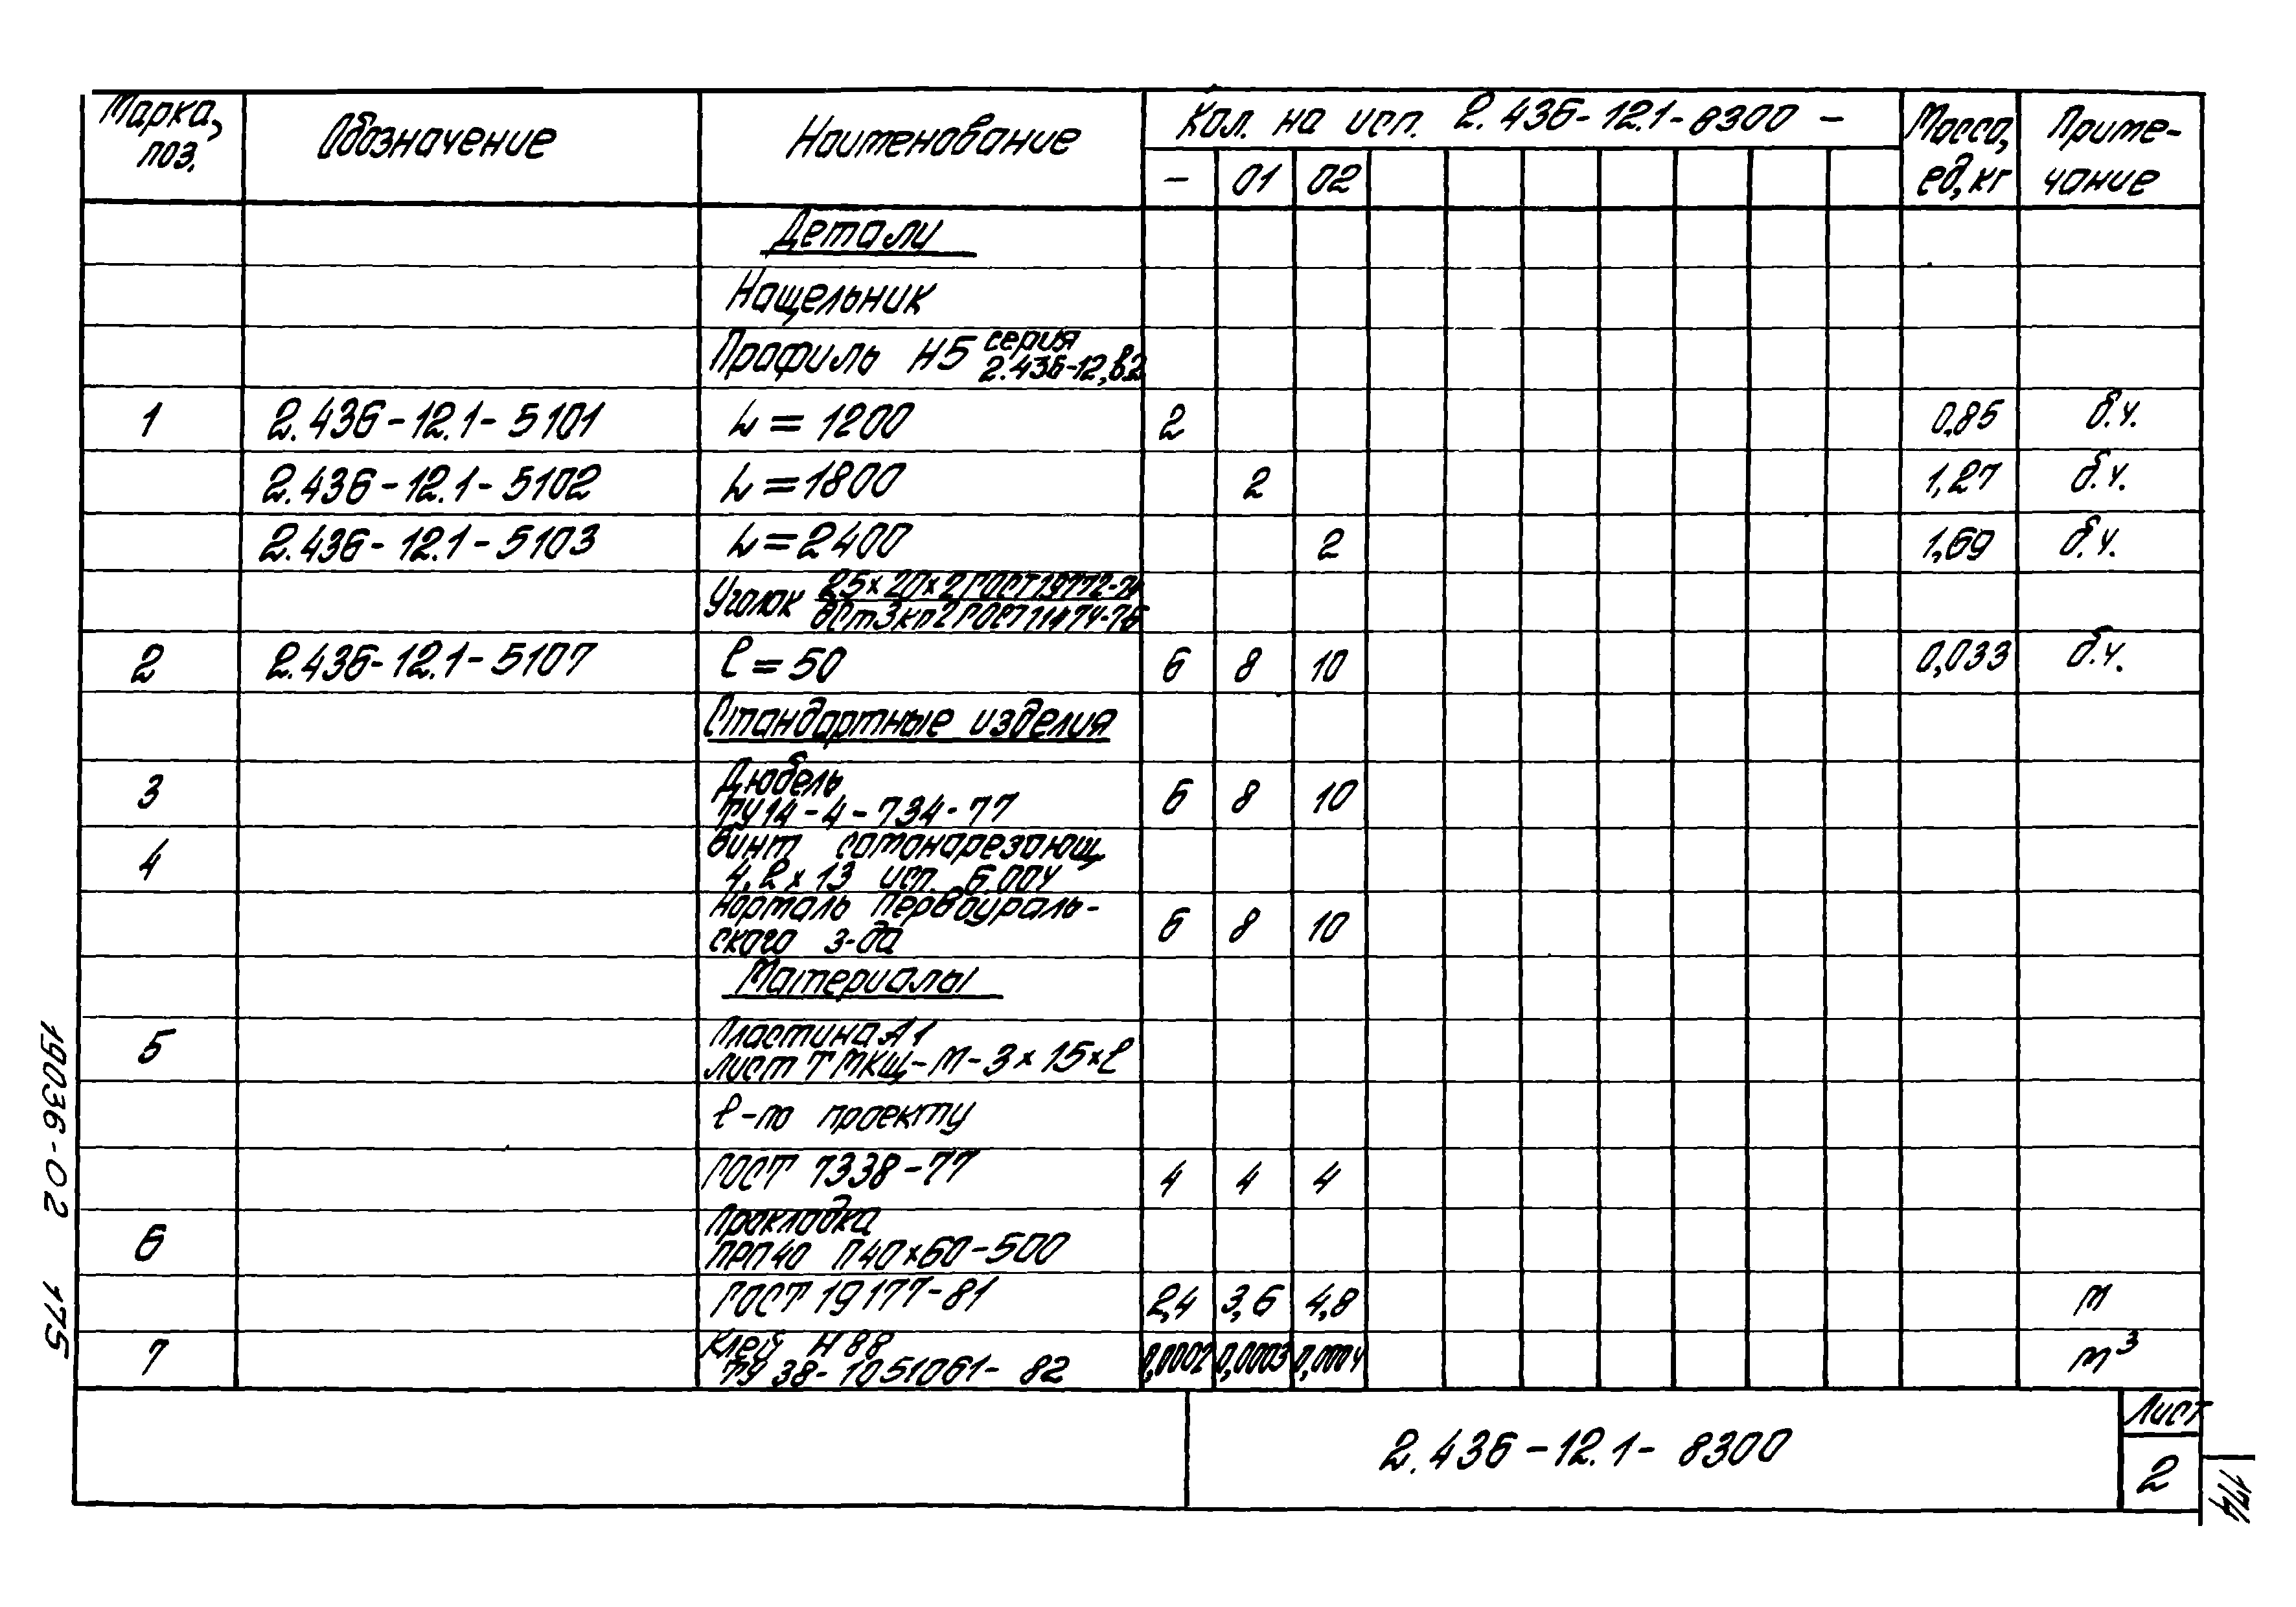 Марка, поз. Обозначение Наименование Кол. на исп. 2.436-12.1-8300 - Масса, ед, кг Приме- чание
- 01 02
Детали
Нащельник
Профиль Н5 серия 2.436-12, в.2
1 2.436-12.1-5101 L=1200 2 0,85 б.ч.
2.436-12.1-5102 L=1800 2 1,27 б.ч.
2.436-12.1-5103 L=2400 2 1,69 б.ч.
Уголок 25×20×2 ГОСТ 19772-74
ВСт3кп2 ГОСТ 11474-76
2 2.436-12.1-5107 ℓ=50 6 8 10 0,033 б.ч.
Стандартные изделия
3 Дюбель
ТУ14-4-734-77 6 8 10
4 Винт самонарезающ.
4,2×13 исп. 6.004
Нормаль Первоураль-
ского з-да 6 8 10
Материалы
5 Пластина А1
лист ТМКЩ-М-3×15×ℓ
ℓ-по проекту
ГОСТ 7338-77 4 4 4
6 Прокладка
ПРП40 П40×60-500
ГОСТ 19177-81 2,4 3,6 4,8 м
7 Клей Н88
ТУ 38-1051061-82 0,0002 0,0003 0,0004 м³
2.436-12.1-8300
Лист
2
19036-02 175
174